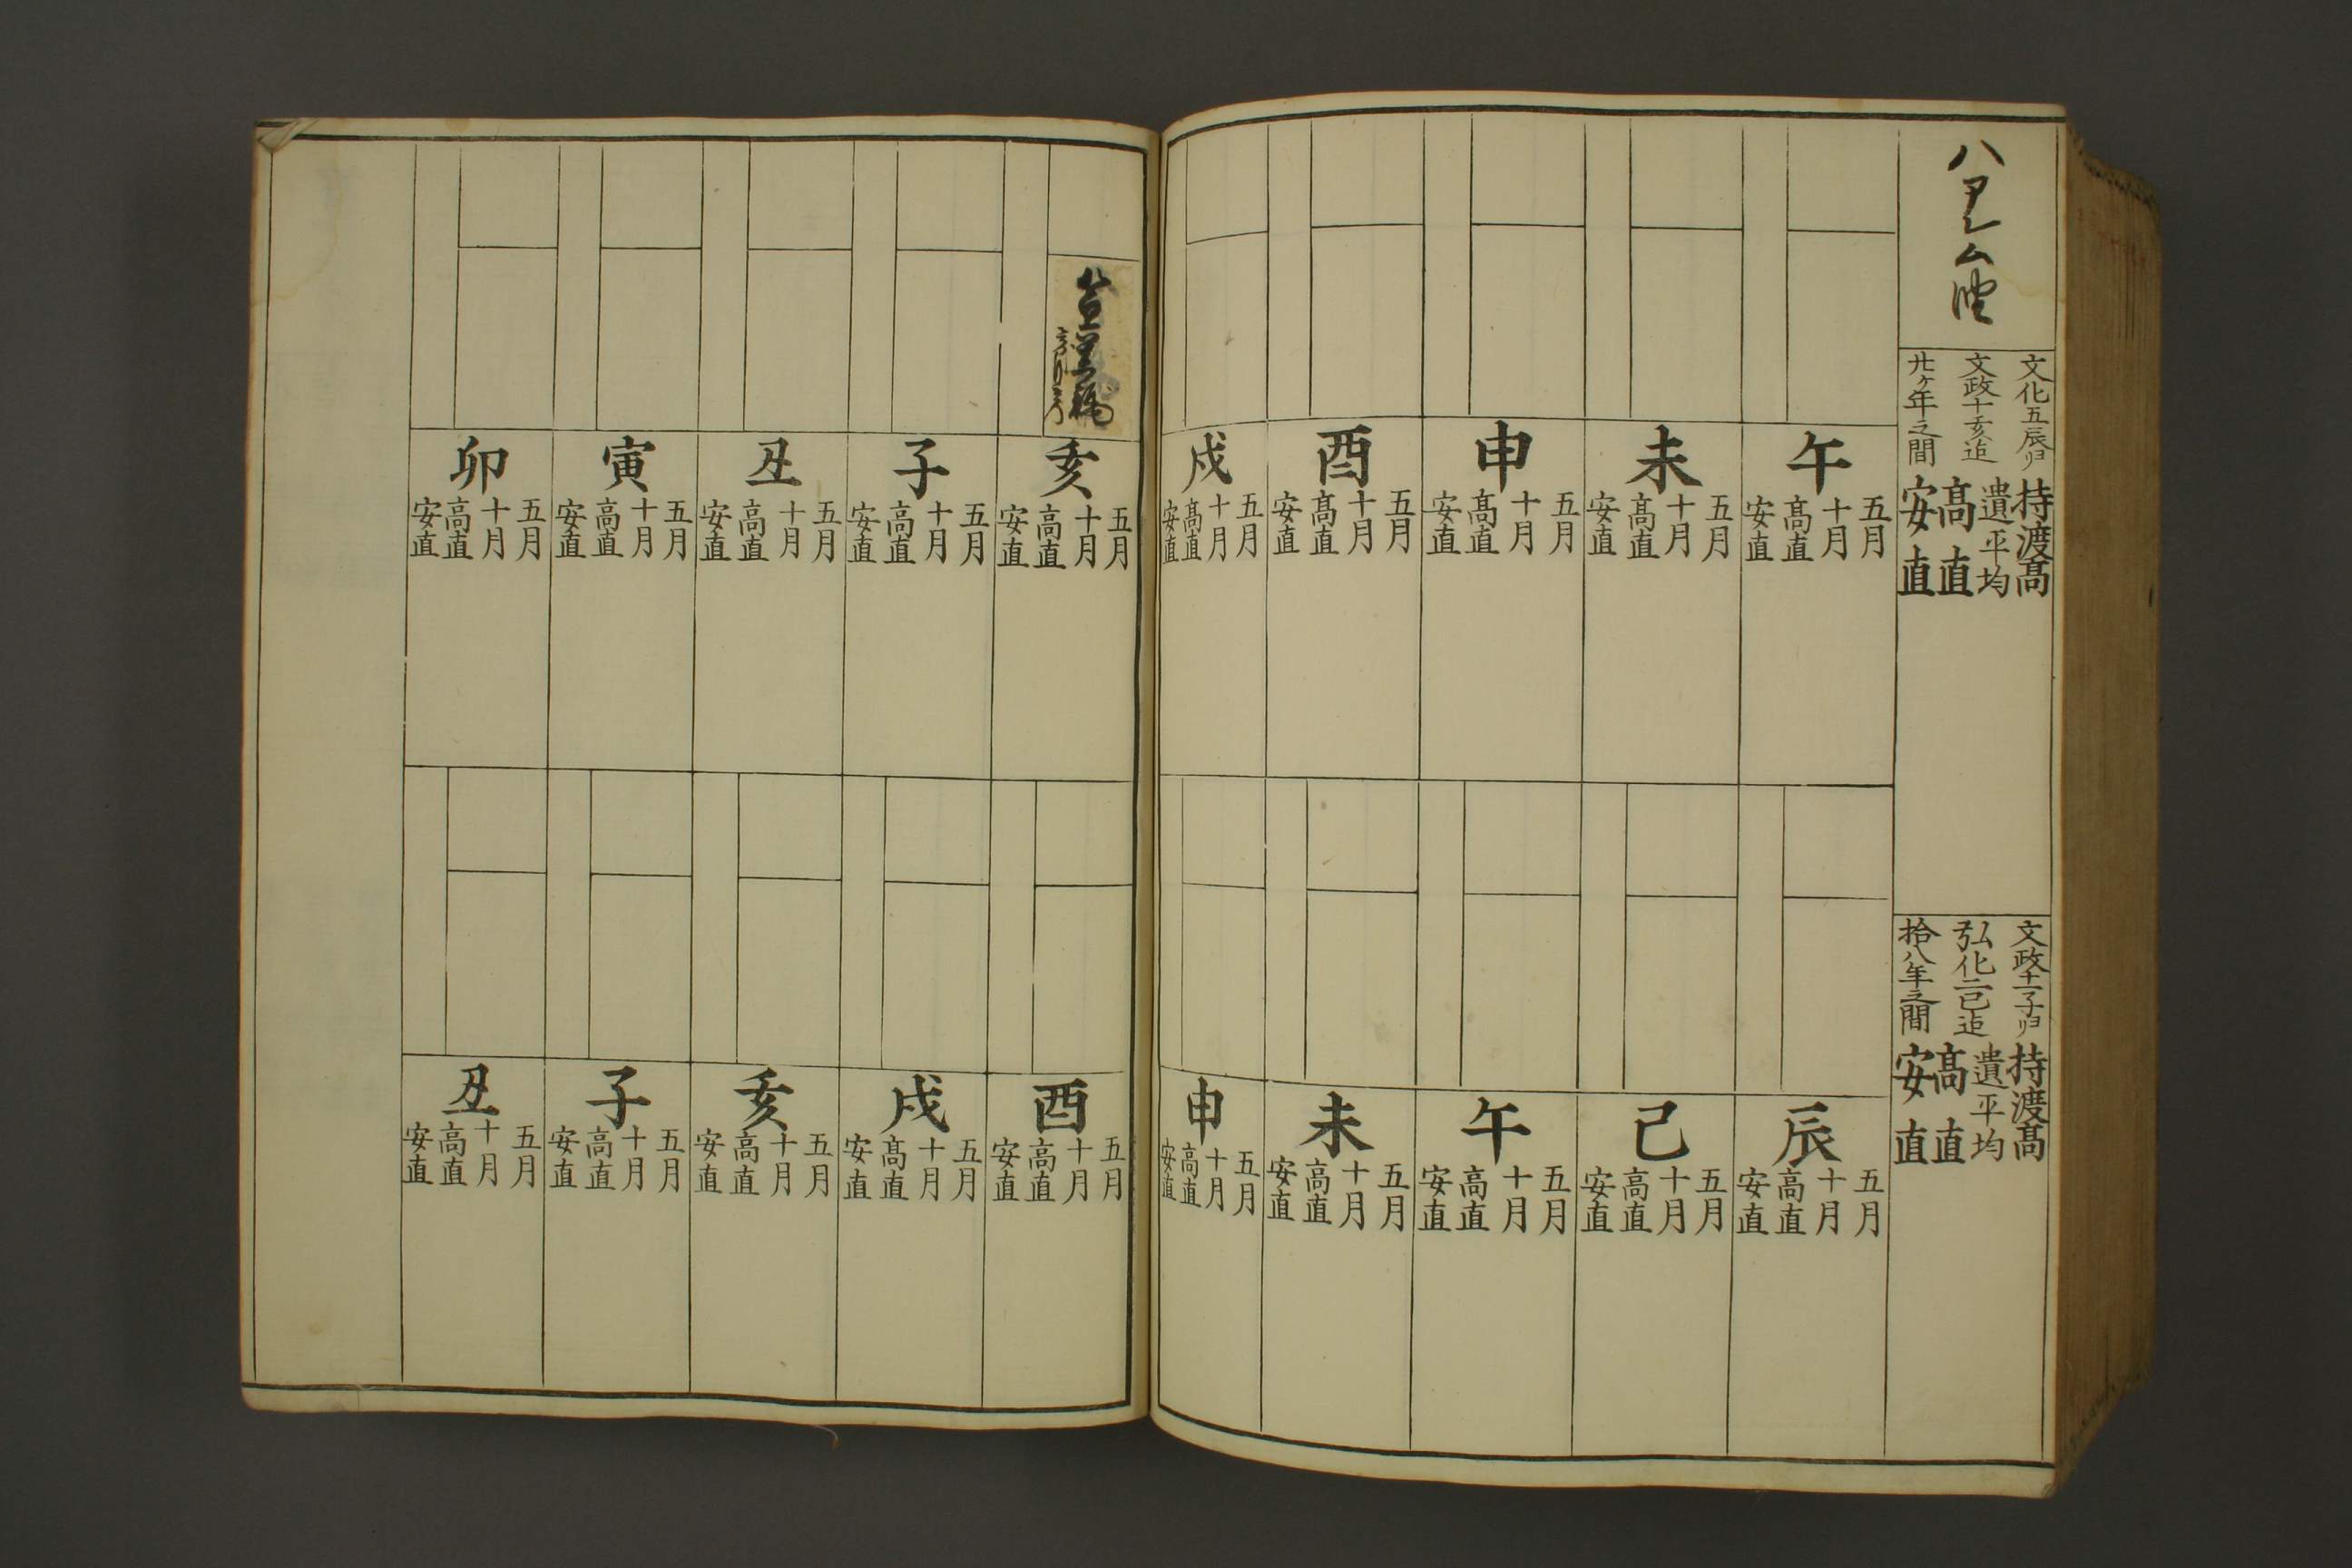 文化五辰ゟ
文政十亥迄
廿ヶ年之間
持渡高
遺平均
高直
安直
午
五月
十月
高直
安直
未
五月
十月
高直
安直
申
五月
十月
高直
安直
酉
五月
十月
高直
安直
戌
五月
十月
高直
安直
文政十一子ゟ
弘化二巳迄
拾八年之間
持渡高
遺平均
高直
安直
辰
五月
十月
高直
安直
巳
五月
十月
高直
安直
午
五月
十月
高直
安直
未
五月
十月
高直
安直
申
五月
十月
高直
安直
亥
五月
十月
高直
安直
子
五月
十月
高直
安直
丑
五月
十月
高直
安直
寅
五月
十月
高直
安直
卯
五月
十月
高直
安直
酉
五月
十月
高直
安直
戌
五月
十月
高直
安直
亥
五月
十月
高直
安直
子
五月
十月
高直
安直
丑
五月
十月
高直
安直